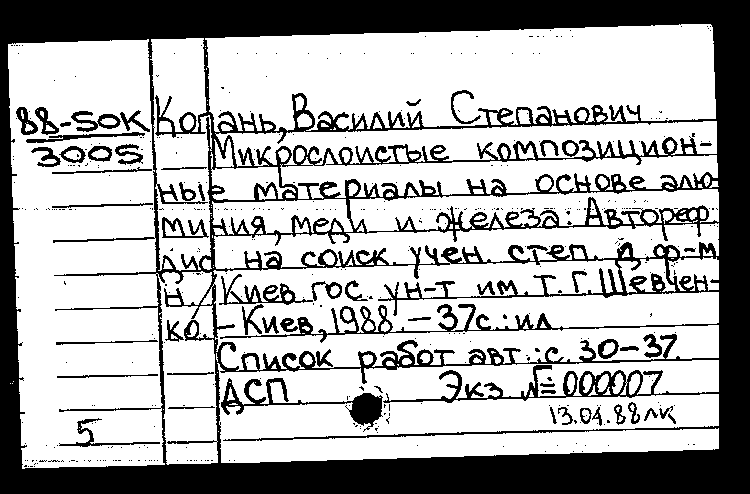 88-50К Копань, Василий Степанович
3005 Микрослоистые композицион-
ные материалы на основе алю-
миния, меди и железа: Автореф.
дис. на соиск. учен. степ. д. ф-м
н. / Киев. гос. ун-т им. Т. Г. Шевчен-
ко. – Киев, 1988. – 37с.: ил.
Список работ авт.: с. 30-37.
ДСП. Экз №=000007.
13.04.88лк
5